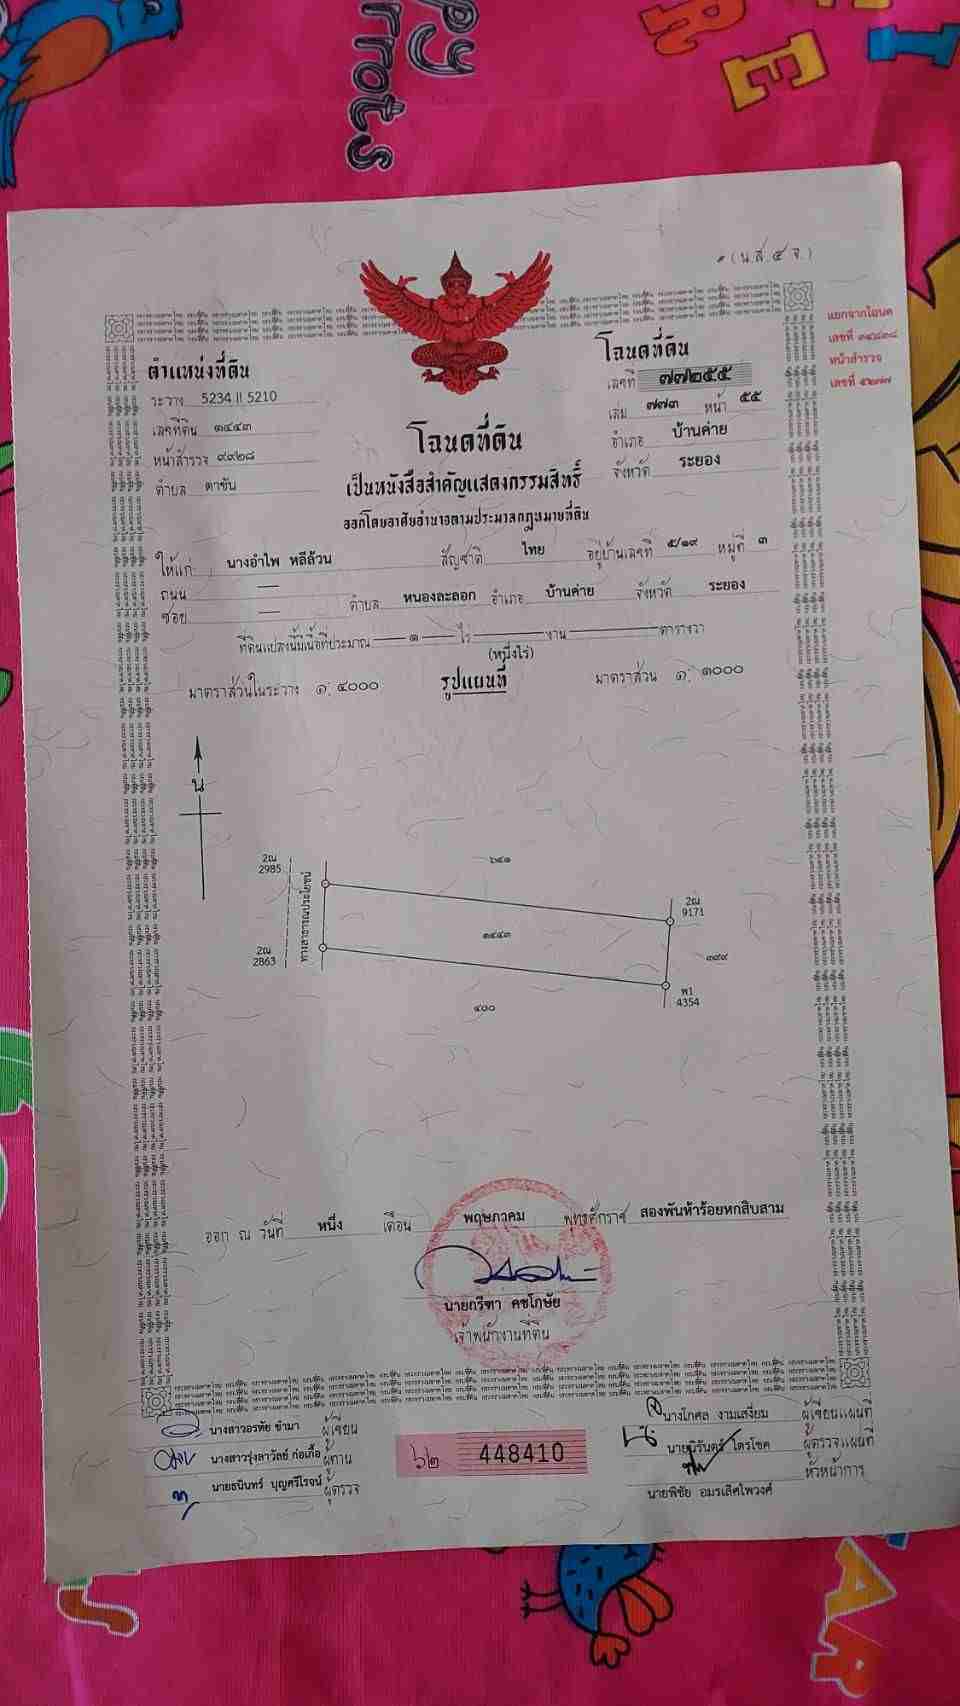 (น.ส.๔ จ.)
แยกจากโฉนด
เลขที่ ๓๔๘๓๘
หน้าสำรวจ
เลขที่ ๕๒๗๗
ตำแหน่งที่ดิน
ระวาง 5234 II 5210
เลขที่ดิน ๑๔๔๓
หน้าสำรวจ ๙๙๒๘
ตำบล ตาขัน
โฉนดที่ดิน
เลขที่ ๗๗๒๕๕
เล่ม ๗๗๓ หน้า ๕๕
อำเภอ บ้านค่าย
จังหวัด ระยอง
โฉนดที่ดิน
เป็นหนังสือสำคัญแสดงกรรมสิทธิ์
ออกโดยอาศัยอำนาจตามประมวลกฎหมายที่ดิน
ให้แก่ นางอำไพ หลีล้วน สัญชาติ ไทย อยู่บ้านเลขที่ ๕/๑๙ หมู่ที่ ๓
ถนน —
ซอย — ตำบล หนองละลอก อำเภอ บ้านค่าย จังหวัด ระยอง
ที่ดินแปลงนี้มีเนื้อที่ประมาณ ๑ ไร่ งาน ตารางวา
(หนึ่งไร่)
มาตราส่วนในระวาง ๑: ๔๐๐๐ รูปแผนที่ มาตราส่วน ๑: ๑๐๐๐
น
2ณ
2985
ทางสาธารณประโยชน์
2ณ
2863
๖๔๑
๑๔๔๓
2ณ
9171
๓๙๙
พ1
4354
๔๐๐
ออก ณ วันที่ หนึ่ง เดือน พฤษภาคม พุทธศักราช สองพันห้าร้อยหกสิบสาม
นายกรีฑา คชโกษัย
เจ้าพนักงานที่ดิน
นางสาวอรทัย ขำมา ผู้เขียน
นางสาวรุ่งลาวัลย์ ก่อเกื้อ ผู้ทาน
นายธนินทร์ บุญศรีโรจน์ ผู้ตรวจ
๖๒ 448410
นางโกศล งามเสงี่ยม ผู้เขียนแผนที่
นายนิรันดร์ ไตรโชค ผู้ตรวจแผนที่
หัวหน้าการ
นายพิชัย อมรเลิศไพวงศ์